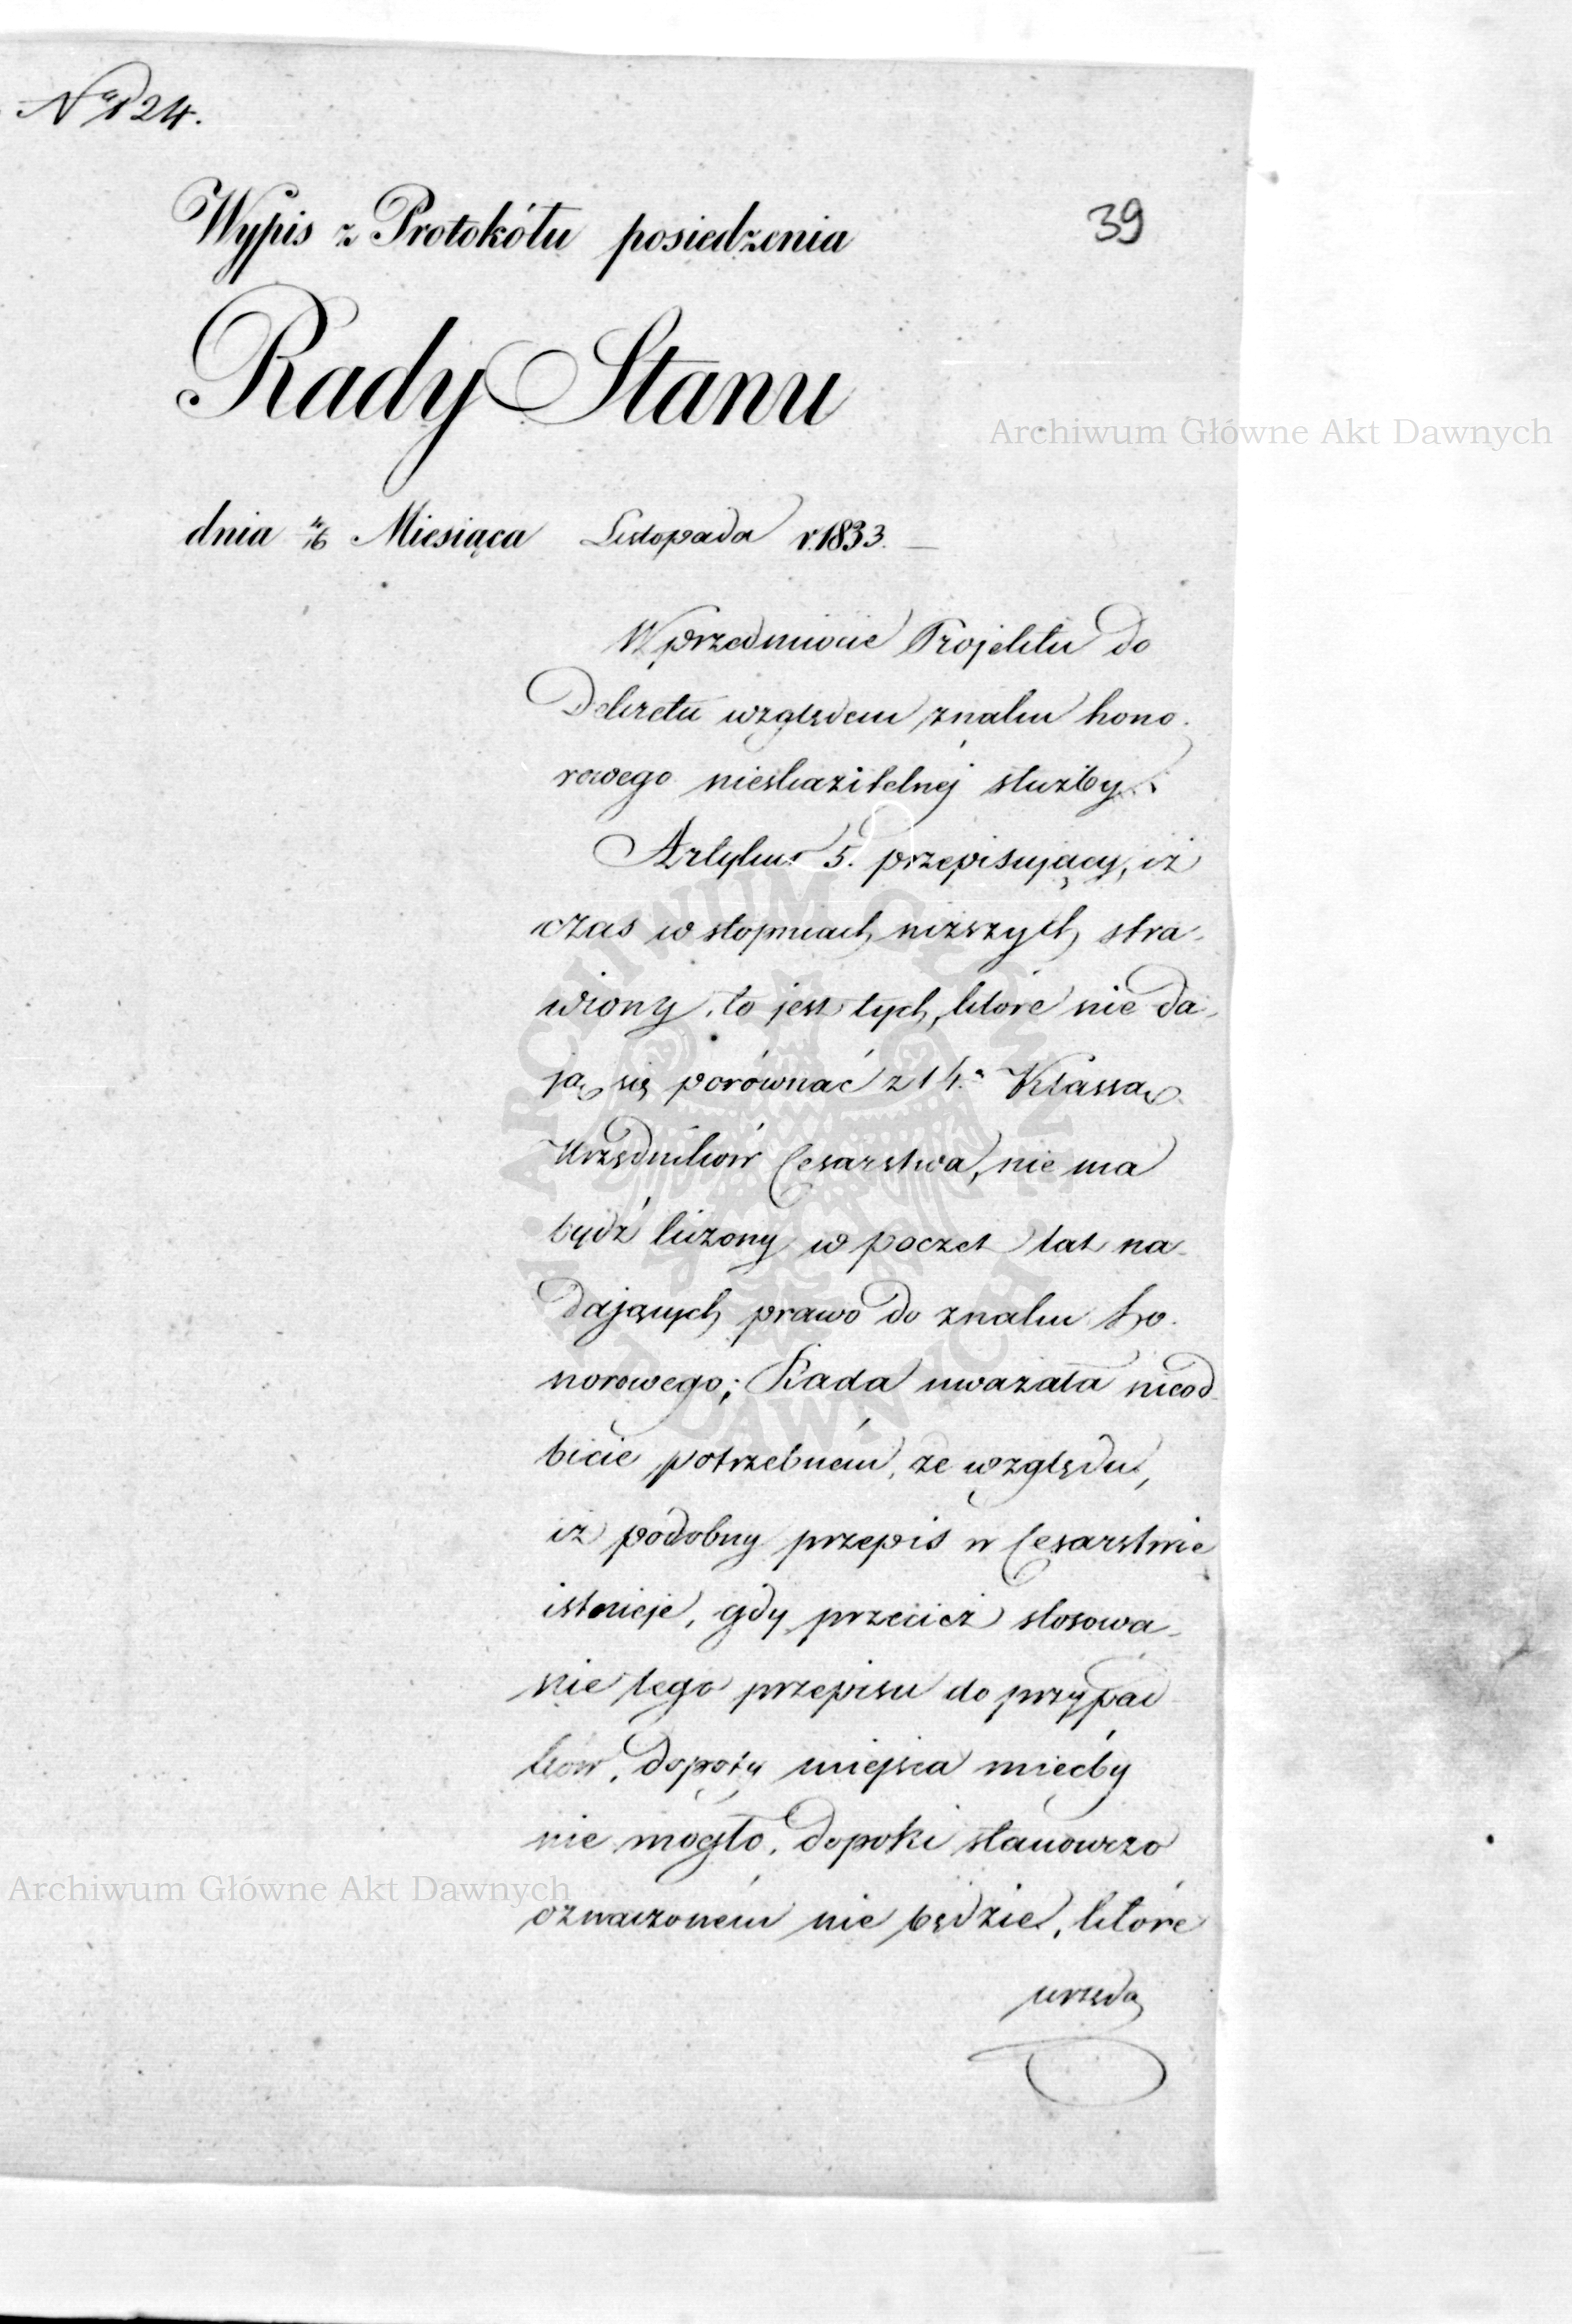 Nro 124.
Wypis z Protokółu posiedzenia
39
Rady Stanu
Archiwum Główne Akt Dawnych
dnia 4/16 Miesiąca Listopada r. 1833. —
W przedmiocie Projektu do
Dekretu względem znaku hono-
rowego nieskazitelnej służby.
Artykuł 5. przepisujący, iż
czas w stopniach niższych stra-
wiony, to jest tych, które nie da-
ją się porównać z 14.ą Klassą
Urzędników Cesarstwa, nie ma
bydź liczony w poczet lat na-
dających prawo do znaku ho-
norowego; Rada uważała nieod-
bicie potrzebném, ze względu,
iż podobny przepis w Cesarstwie
istnieje, gdy przecież stosowa-
nie tego przepisu do przypad-
ków, dopóty miejsca miećby
nie mogło, dopoki stanowczo
Archiwum Główne Akt Dawnych
oznaczoném nie będzie, które
urzęda